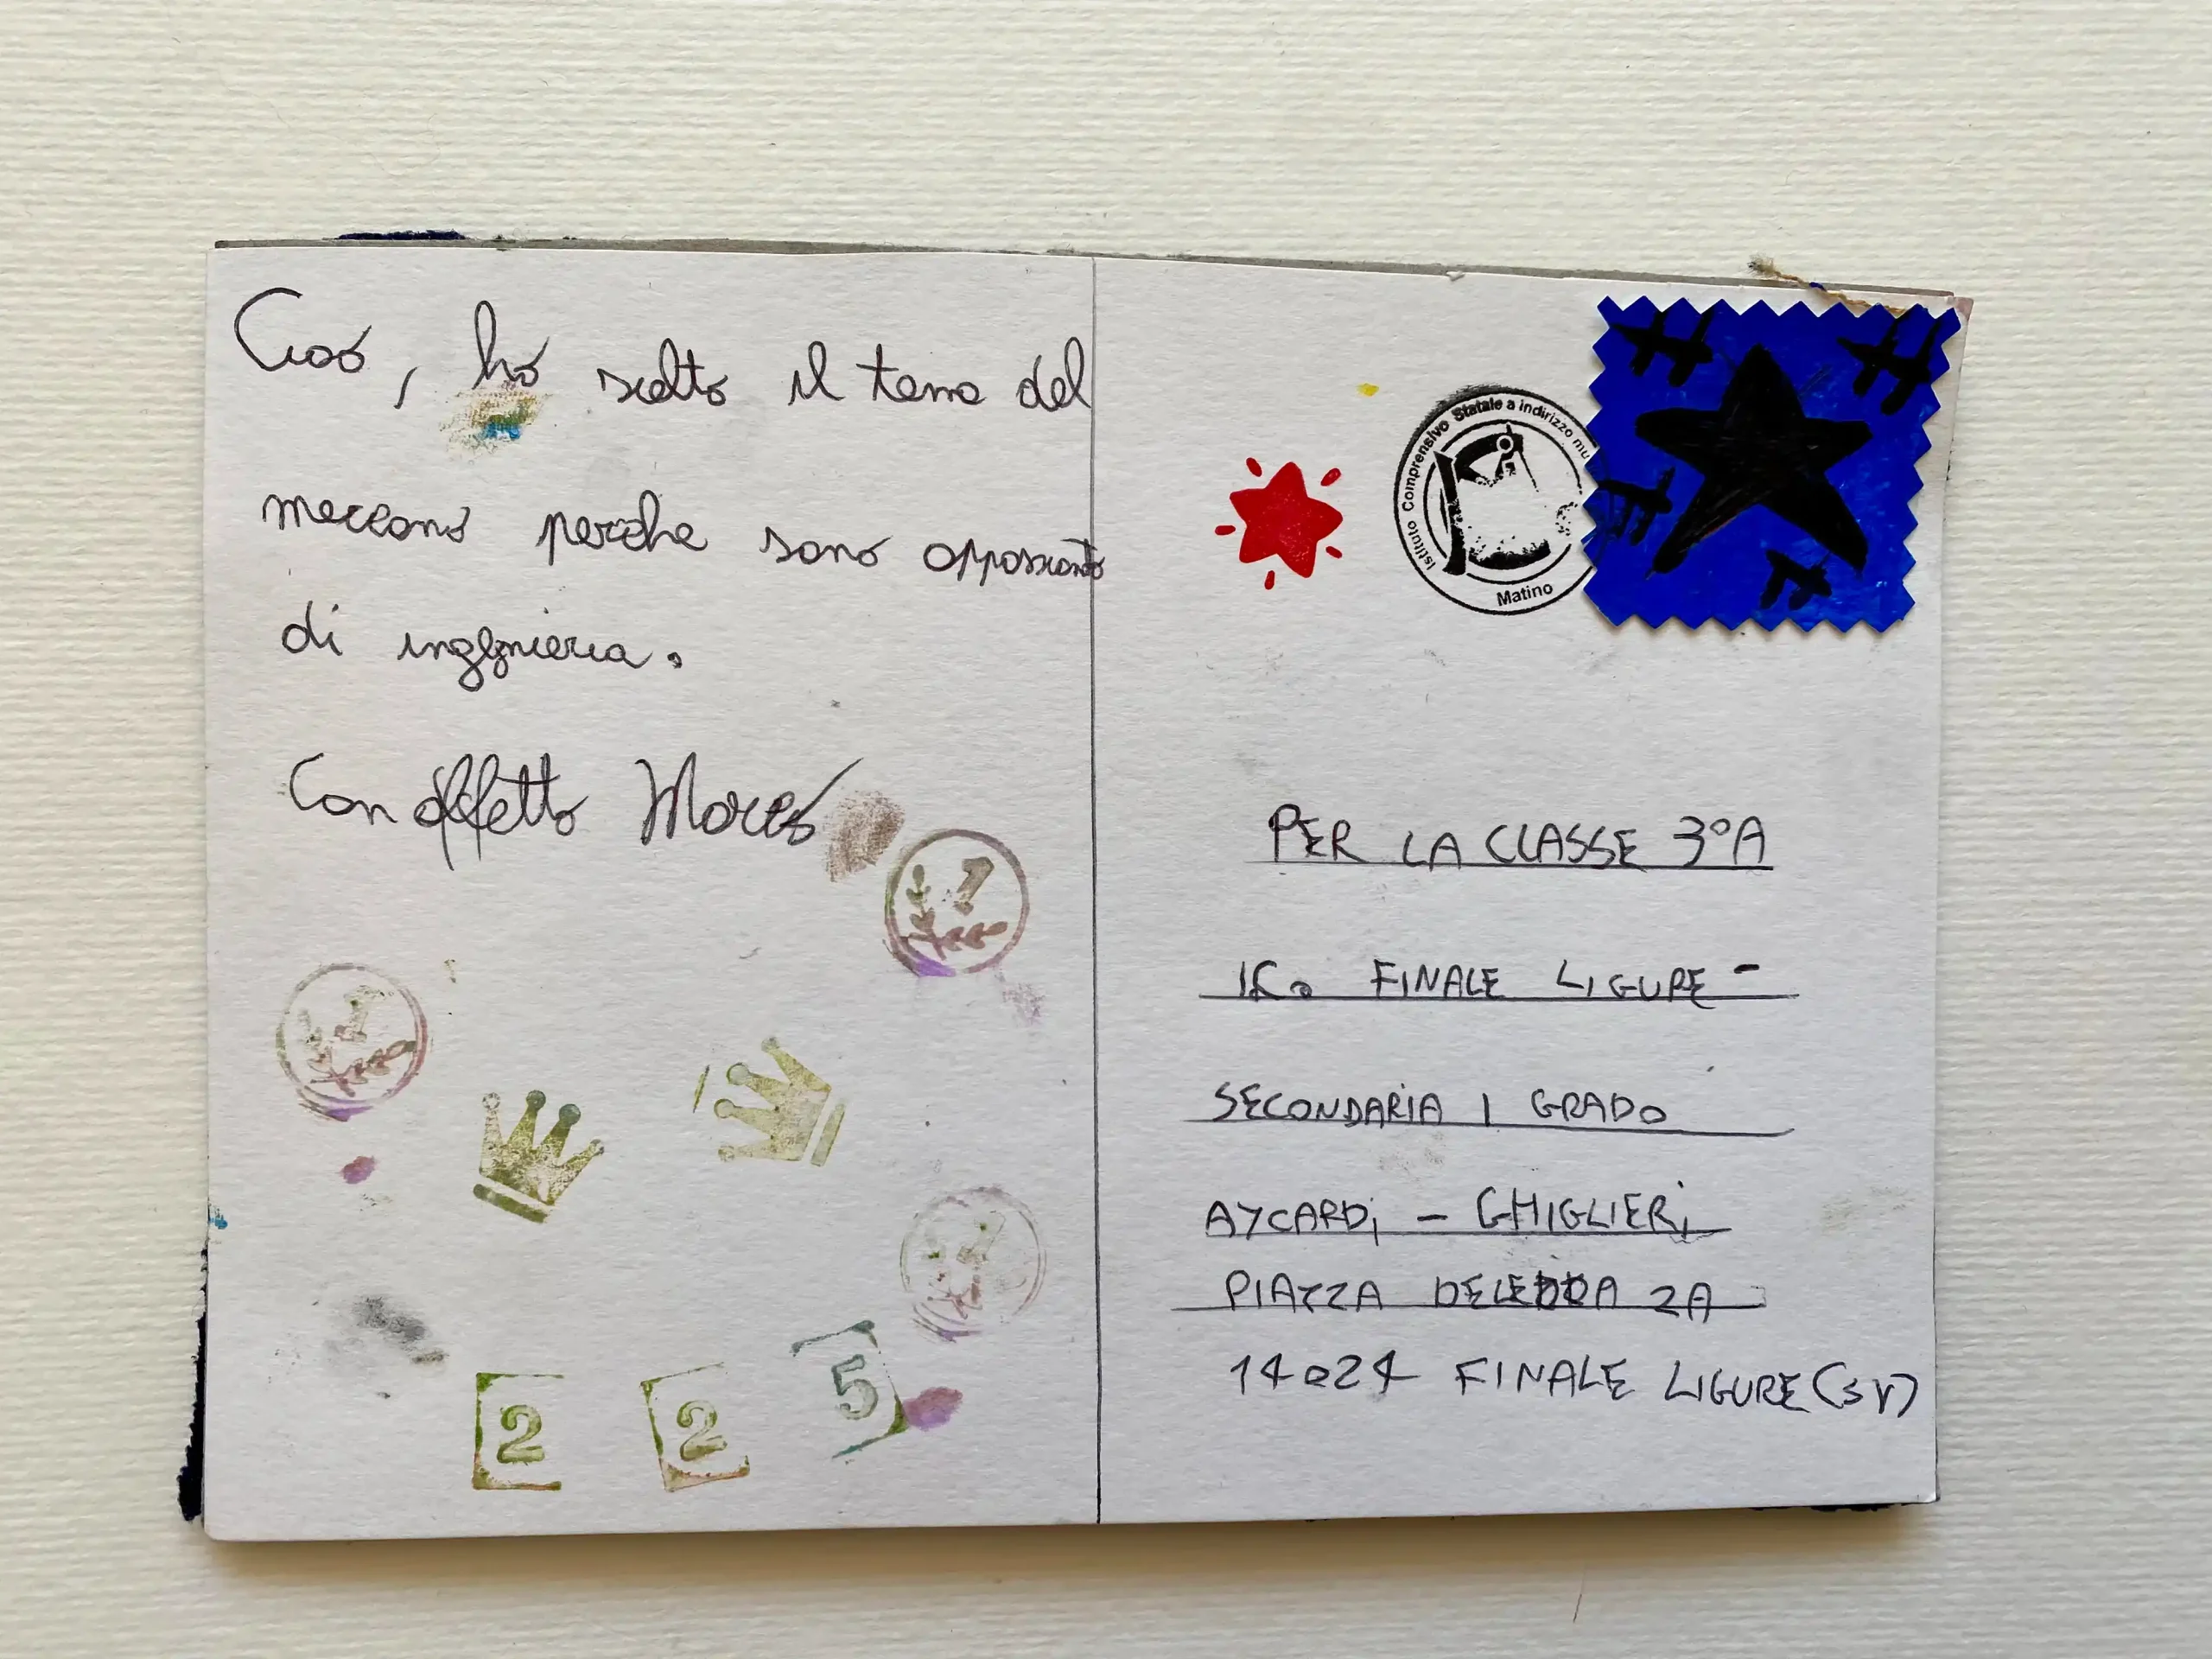 Ciao, ho scelto il tema del
meccano perche sono appassionato
di ingegnieria.
Con affetto Marco
1
1
1
2 2 5
Istituto Comprensivo Statale a indirizzo mu
Matino
PER LA CLASSE 3°A
IC. FINALE LIGURE -
SECONDARIA I GRADO
AYCARDI - GHIGLIERI
PIAZZA DELEDDA 2A
14024 FINALE LIGURE (SV)